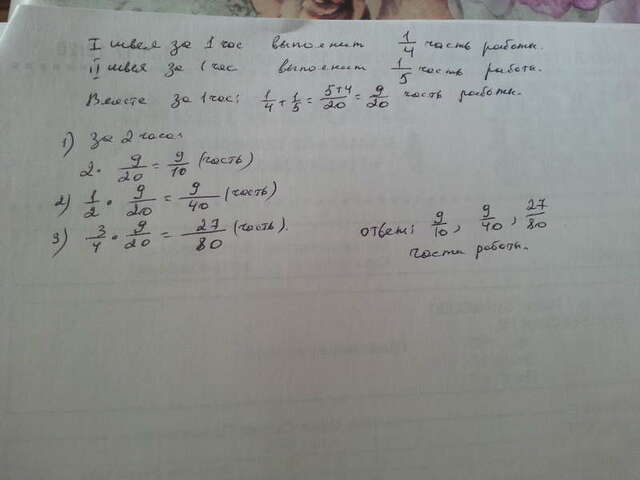 I швея за 1 час выполнит 1/4 часть работы.
II швея за 1 час выполнит 1/5 часть работы.
Вместе за 1 час: 1/4 + 1/5 = 5+4/20 = 9/20 часть работы.
1) за 2 часа:
2 · 9/20 = 9/10 (часть)
2) 1/2 · 9/20 = 9/40 (часть)
3) 3/4 · 9/20 = 27/80 (часть).
ответ: 9/10, 9/40, 27/80
части работы.